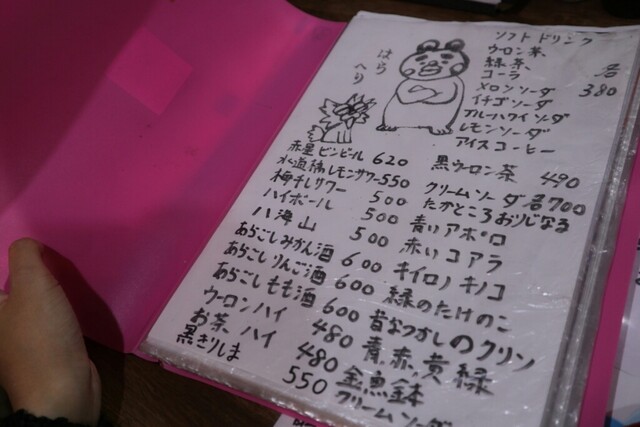 はら
へり
赤星ビンビール 620
水道橋レモンサワー 550
梅干しサワー 500
ハイボール 500
八海山 500
あらごしみかん酒 600
あらごしりんご酒 600
あらごしもも酒 600
ウーロンハイ 480
お茶ハイ 480
黒きりしま 550
ソフトドリンク
ウーロン茶
緑茶
コーラ 各
メロンソーダ 380
イチゴソーダ
ブルーハワイソーダ
レモンソーダ
アイスコーヒー
黒ウーロン茶 490
クリームソーダ 各700
たかところおりじなる
青いアポロ
赤いコアラ
キイロノキノコ
緑のたけのこ
昔なつかしのクリソ
青、赤、黄緑
金魚鉢
クリームソーダ